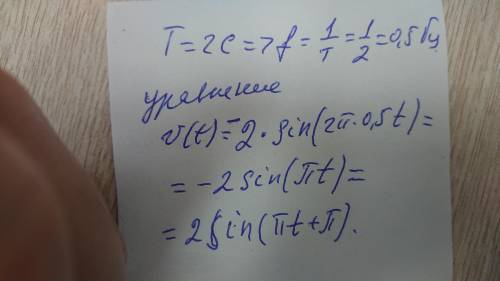 T=2c=>f=1/T=1/2=0,5Гц
уравнение
v(t)=-2·sin(2π·0,5t)=
=-2sin(πt)=
=2sin(πt+π).